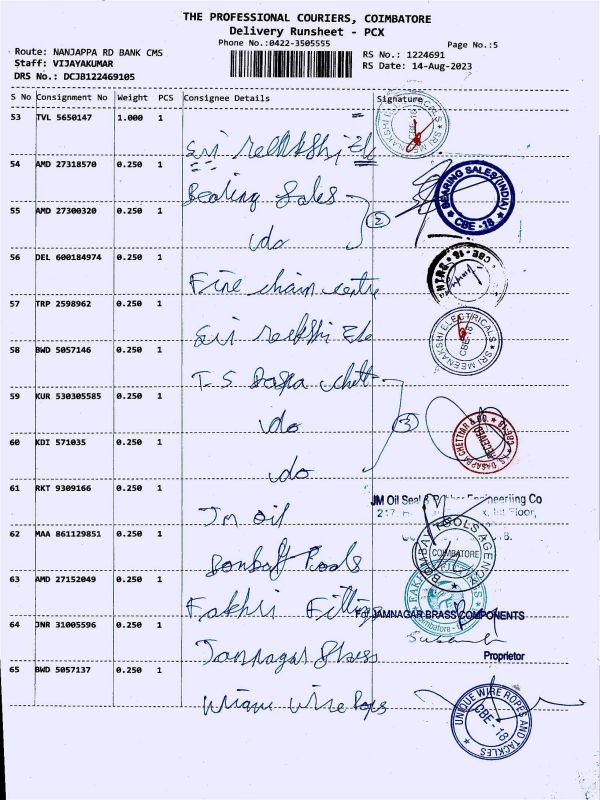 THE PROFESSIONAL COURIERS, COIMBATORE
Delivery Runsheet - PCX
Phone No.:0422-3505555
Page No.:5
Route: NANJAPPA RD BANK CMS
RS No.: 1224691
Staff: VIJAYAKUMAR
RS Date: 14-Aug-2023
DRS No.: DCJB122469105
S No Consignment No Weight PCS Consignee Details Signature
53 TVL 5650147 1.000 1
SRI MEENAKSHI ELECTRICALS CBE-18
Sri Meenakshi Ele
54 AMD 27318570 0.250 1
Bearing Sales
BEARING SALES (INDIA) CBE - 18
55 AMD 27300320 0.250 1
do
2
56 DEL 600184974 0.250 1
Fine chain centre
CBE - 18
57 TRP 2598962 0.250 1
Sri Meenakshi Ele
SRI MEENAKSHI ELECTRICALS CBE-18
58 BWD 5057146 0.250 1
T.S. Dasapa Chett
59 KUR 530305585 0.250 1
do
3
60 KDI 571035 0.250 1
do
T.S. DASAPPA CHETTIAR & CO. CBE-18 RECEIVED
61 RKT 9309166 0.250 1
JM Oil Seal & Rubber Engineeriing Co
217, Ist Floor,
Jm Oil
62 MAA 861129851 0.250 1
Bombay Tools
BOMBAY TOOLS AGENCY COIMBATORE
63 AMD 27152049 0.250 1
Fakhri Fittings
FAKHRI
Coimbatore
64 JNR 31005596 0.250 1
For JAMNAGAR BRASS COMPONENTS
Proprietor
Jamnagar Brass
65 BWD 5057137 0.250 1
Unique Wire Ropes
UNIQUE WIRE ROPES AND TACKLES CBE - 18